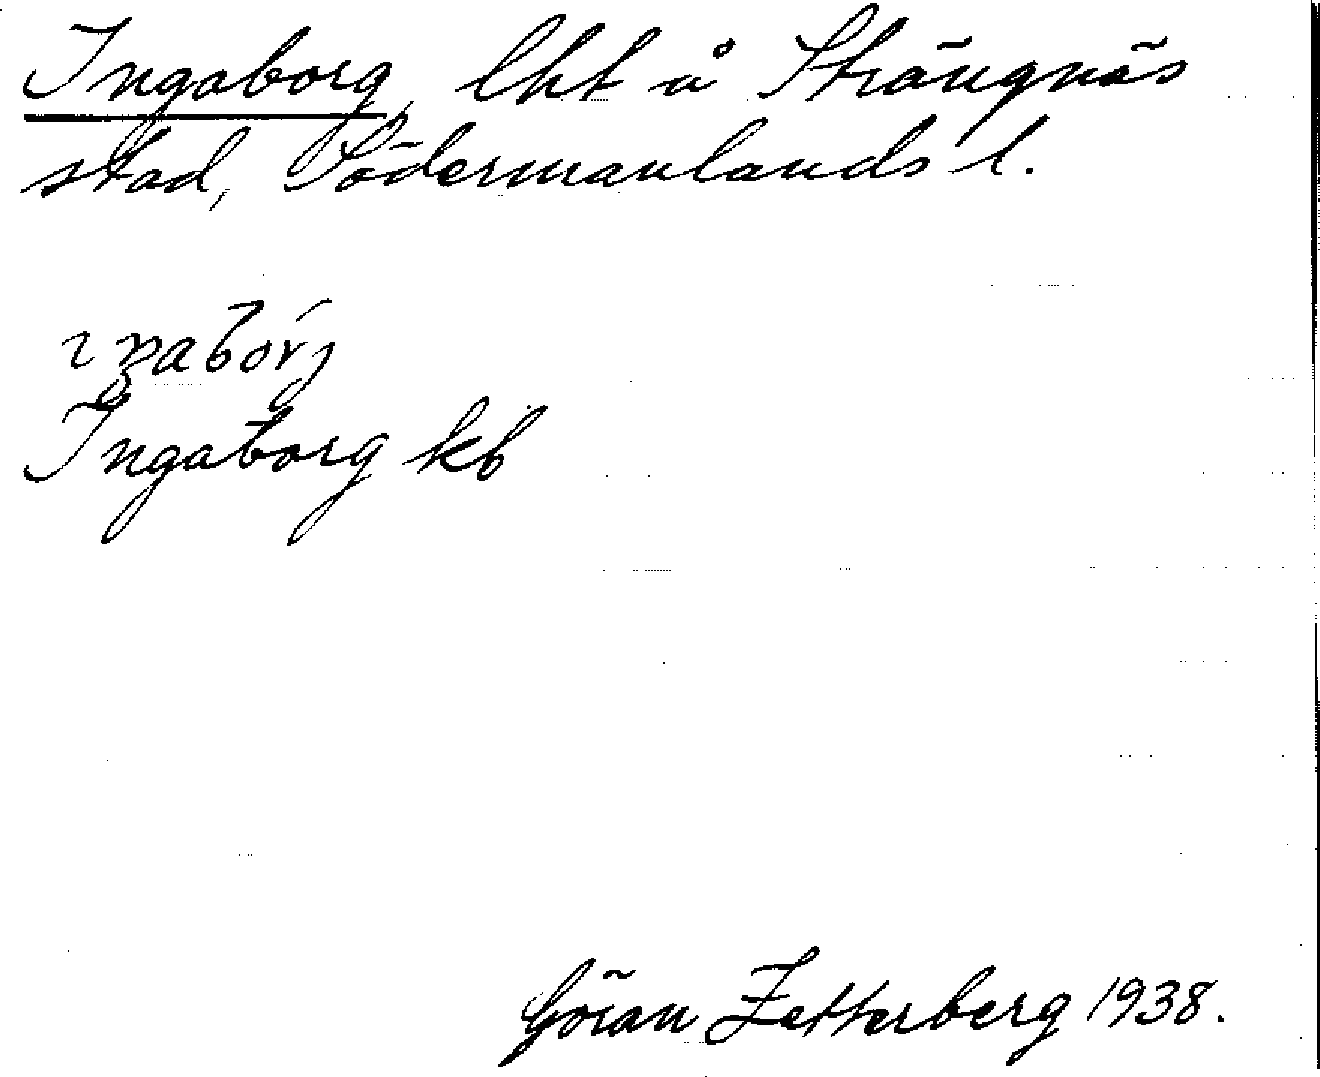 Ingaborg, lht å Strängnäs
stad, Södermanlands l.
Ingaborg kb
Göran Zetterberg 1938.